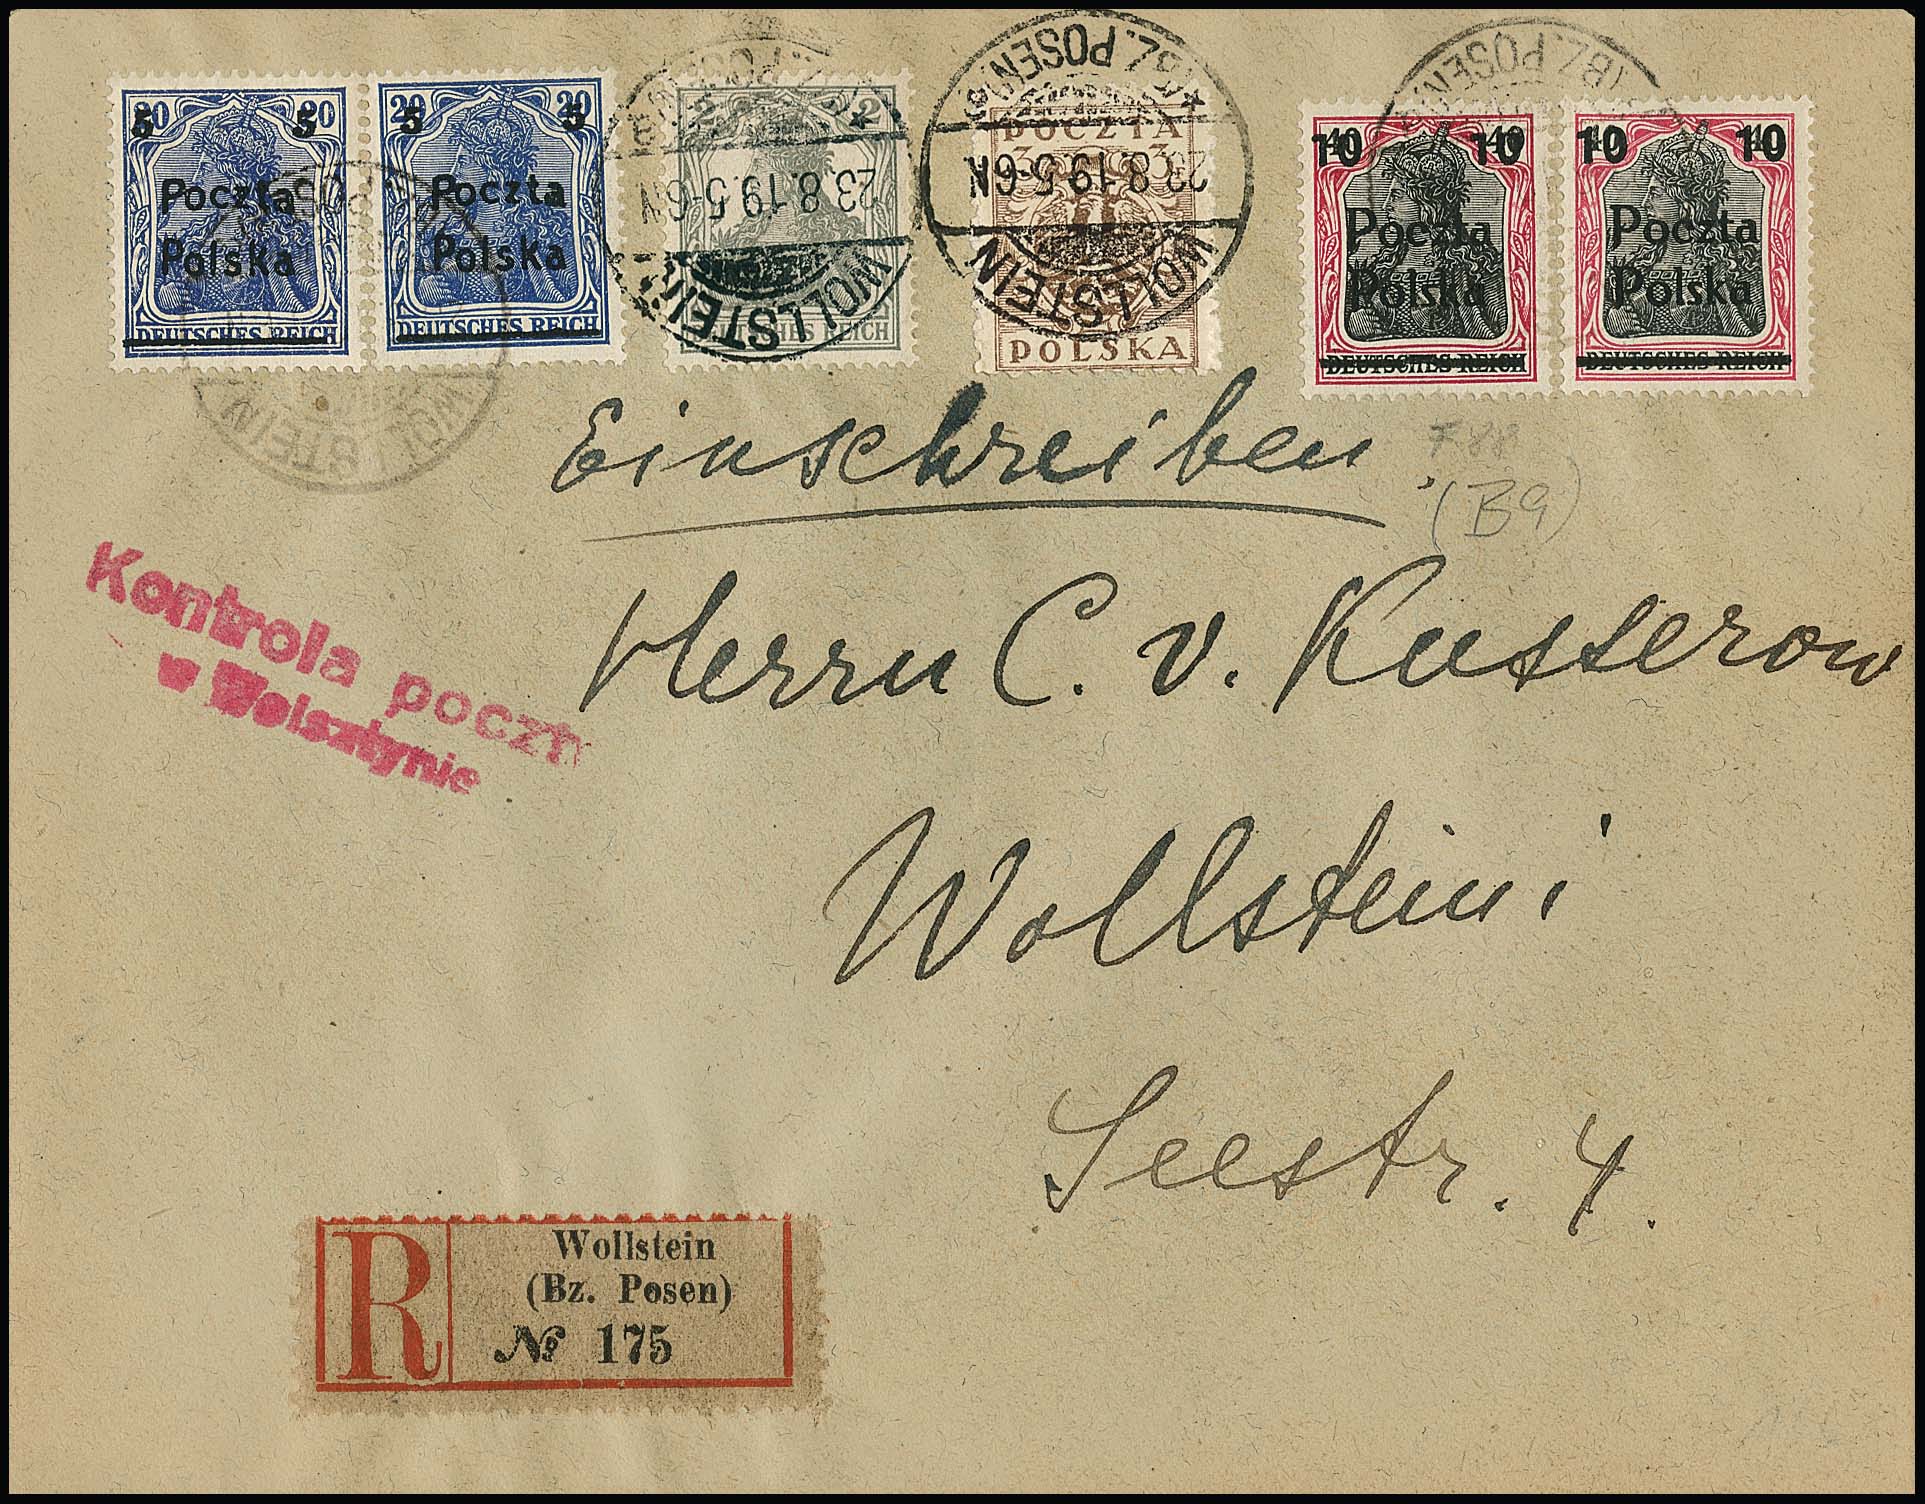 20 20
5 5
Poczta
Polska
DEUTSCHES REICH
20 20
5 5
Poczta
Polska
DEUTSCHES REICH
2 2
DEUTSCHES REICH
POCZTA
3 3
POLSKA
40 40
10 10
Poczta
Polska
DEUTSCHES REICH
40 40
10 10
Poczta
Polska
DEUTSCHES REICH
WOLLSTEIN
23.8.19.5-6N
* (BZ. POSEN)
WOLLSTEIN
23.8.19.5-6N
* (BZ. POSEN)
WOLLSTEIN
(BZ. POSEN)
Einschreiben
(B9)
Herrn C. v. Kusserow
Kontrola poczt
w Wolsztynie
Wollstein i
Seestr. 4.
R
Wollstein
(Bz. Posen)
№ 175